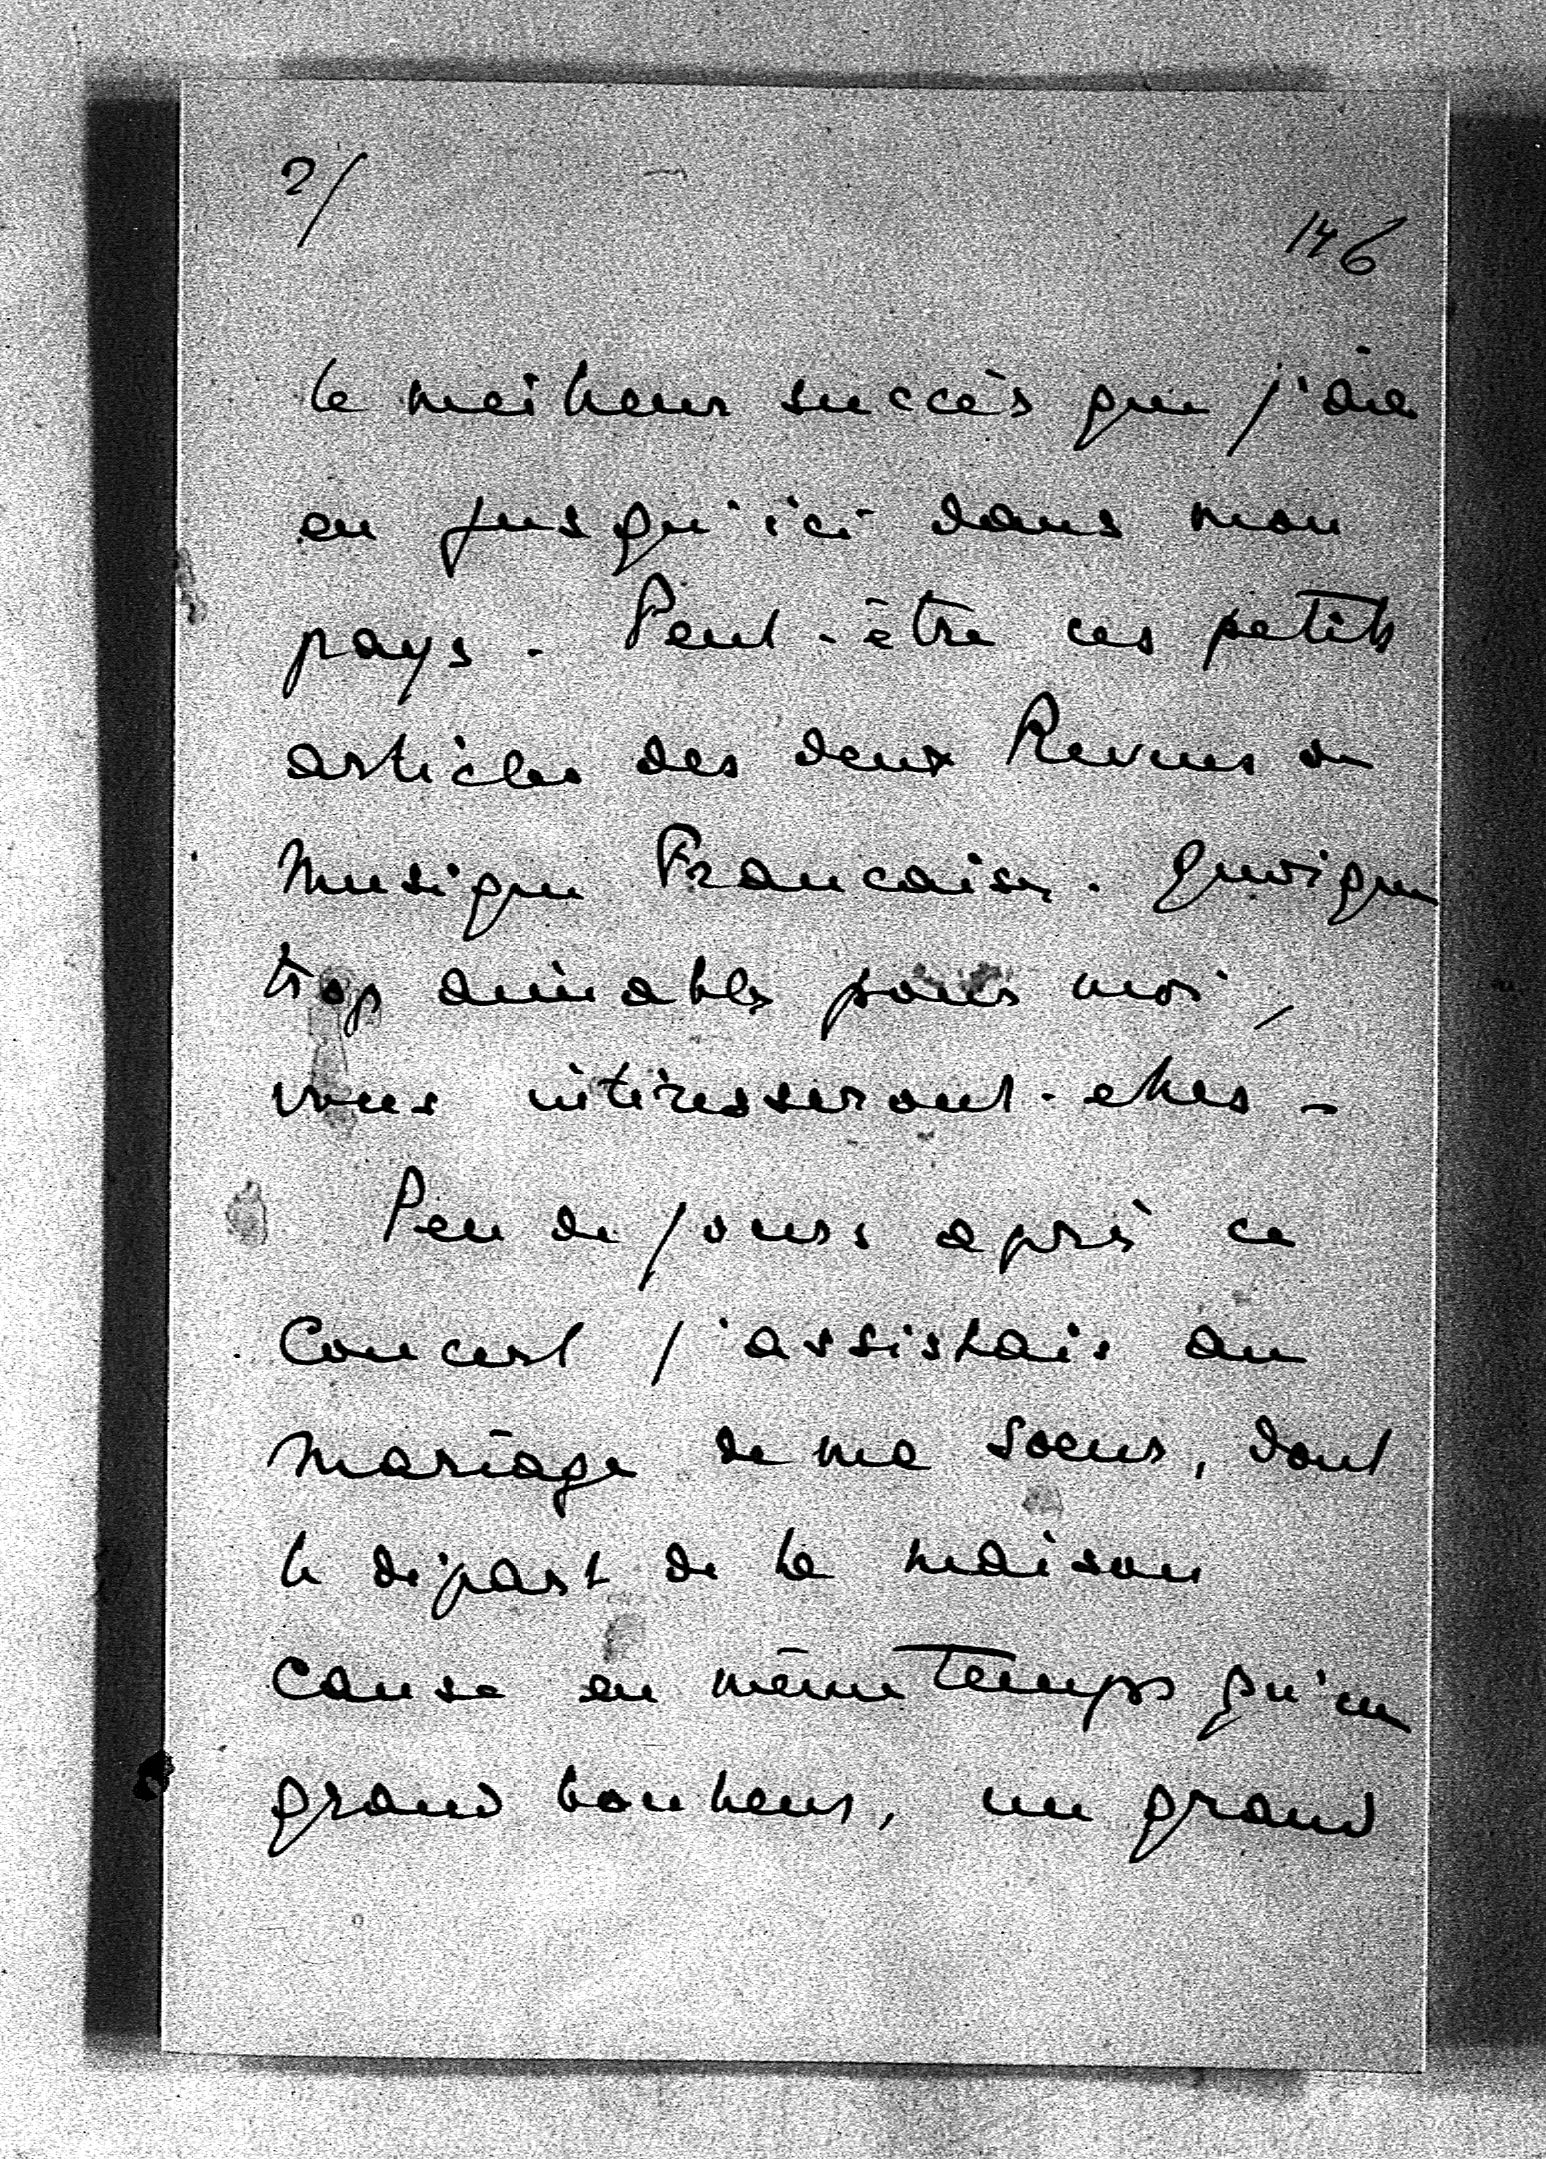 2/
146
le meilleur succès que j'aie
eu jusqu'ici dans mon
pays. Peut-être ces petits
articles des deux Revues de
Musique Francaises. Quoique
trop aimables pour moi,
vous intéresseront-elles -
Peu de jours après ce
Concert j'assistais au
mariage de ma soeur, dont
le départ de la maison
cause en même temps qu'un
grand bonheur, un grand